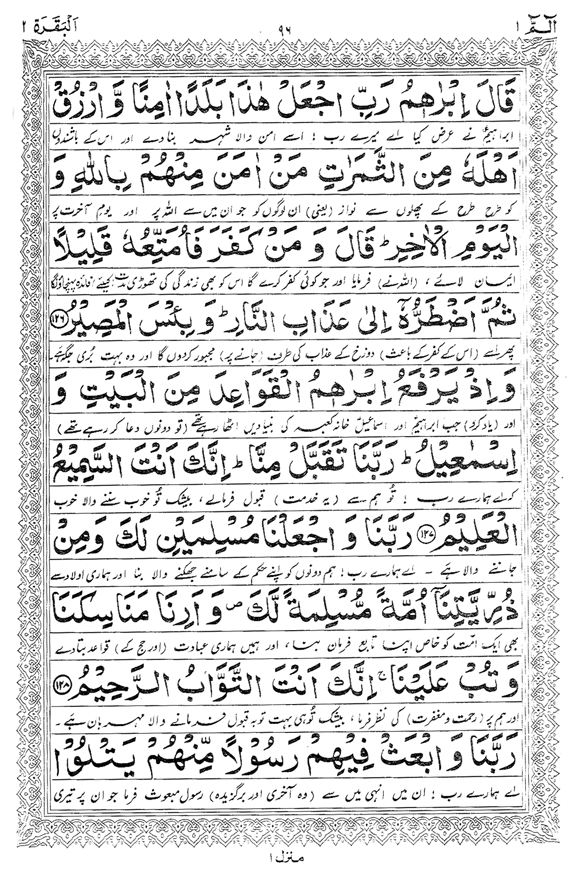 الٓمّٓ ١ ٩٦ اَلْبَقَرَة ٢
قَالَ اِبْرٰهٖمُ رَبِّ اجْعَلْ هٰذَا بَلَدًا اٰمِنًا وَّ ارْزُقْ
ابراہیمؑ نے عرض کیا اے میرے رب! اسے امن والا شہر بنا دے اور اس کے باشندوں
اَهْلَهٗ مِنَ الثَّمَرٰتِ مَنْ اٰمَنَ مِنْهُمْ بِاللّٰهِ وَ
کو طرح طرح کے پھلوں سے نواز (یعنی) ان لوگوں کو جو ان میں سے اللہ پر اور یومِ آخرت پر
الْيَوْمِ الْاٰخِرِ ؕ قَالَ وَ مَنْ كَفَرَ فَاُمَتِّعُهٗ قَلِيْلًا
ایمان لائے، (اللہ نے) فرمایا اور جو کوئی کفر کرے گا اس کو بھی زندگی کی تھوڑی مدت کیلئے فائدہ پہنچاؤں گا
ثُمَّ اَضْطَرُّهٗۤ اِلٰى عَذَابِ النَّارِ ؕ وَ بِئْسَ الْمَصِيْرُ ﴿۱۲۶﴾
پھر اسے (اس کے کفر کے باعث) دوزخ کے عذاب کی طرف (جانے پر) مجبور کر دوں گا اور وہ بہت بُری جگہ ہے۔
وَ اِذْ يَرْفَعُ اِبْرٰهٖمُ الْقَوَاعِدَ مِنَ الْبَيْتِ وَ
اور (یاد کرو) جب ابراہیمؑ اور اسماعیلؑ خانہ کعبہ کی بنیادیں اٹھا رہے تھے (تو دونوں دعا کر رہے تھے)
اِسْمٰعِيْلُ ؕ رَبَّنَا تَقَبَّلْ مِنَّا ؕ اِنَّكَ اَنْتَ السَّمِيْعُ
کہ اے ہمارے رب! تُو ہم سے (یہ خدمت) قبول فرما لے، بیشک تُو خوب سننے والا خوب
الْعَلِيْمُ ﴿۱۲۷﴾ رَبَّنَا وَ اجْعَلْنَا مُسْلِمَيْنِ لَكَ وَمِنْ
جاننے والا ہے۔ اے ہمارے رب! ہم دونوں کو اپنے حکم کے سامنے جھکنے والا بنا اور ہماری اولاد سے
ذُرِّيَّتِنَاۤ اُمَّةً مُّسْلِمَةً لَّكَ ۪ وَ اَرِنَا مَنَاسِكَنَا
بھی ایک امت کو خاص اپنا تابع فرمان بنا، اور ہمیں ہماری عبادت (اور حج کے) قواعد بتا دے
وَ تُبْ عَلَيْنَا ۚ اِنَّكَ اَنْتَ التَّوَّابُ الرَّحِيْمُ ﴿۱۲۸﴾
اور ہم پر (رحمت و مغفرت) کی نظر فرما، بیشک تُو ہی بہت توبہ قبول فرمانے والا مہربان ہے۔
رَبَّنَا وَ ابْعَثْ فِيْهِمْ رَسُوْلًا مِّنْهُمْ يَتْلُوْا
اے ہمارے رب! ان میں انہی میں سے (وہ آخری اور برگزیدہ) رسول مبعوث فرما جو ان پر تیری
منزل ١